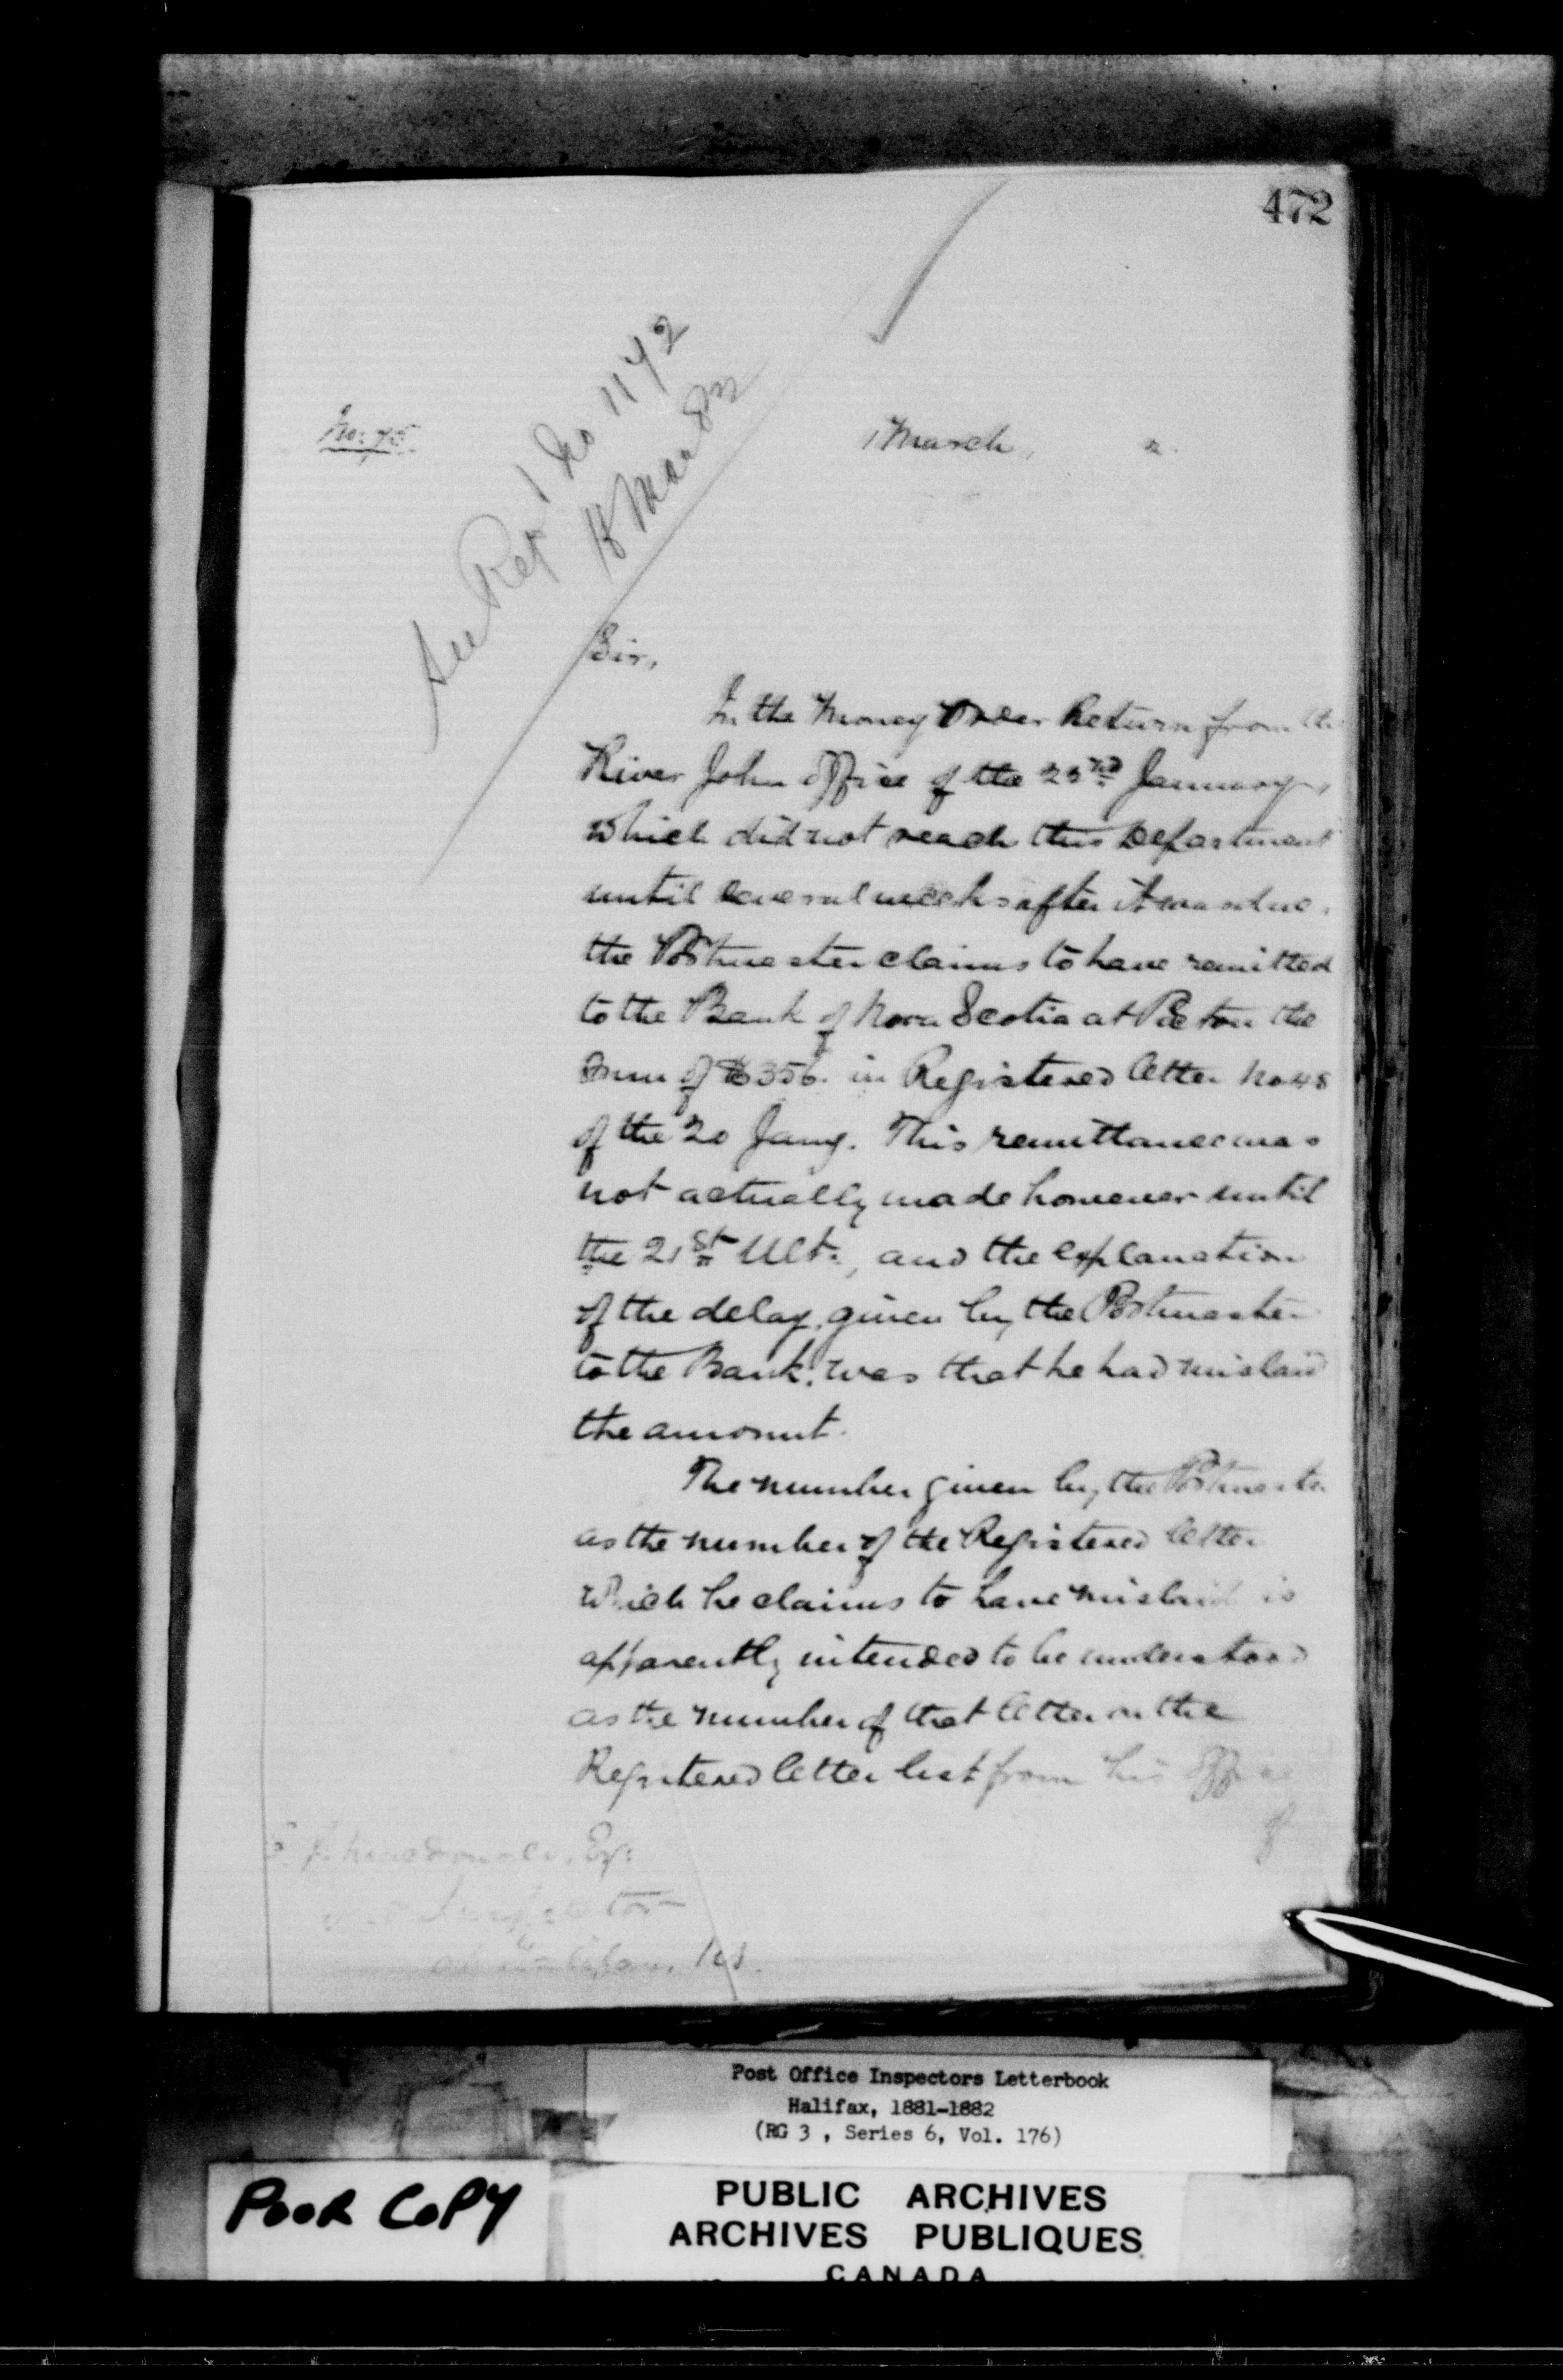 472
No: 75.
1 March, 2.
See Rept No 1172
18 Mar 82
Sir,
In the Money Order Return from the
River John Office of the 23rd January,
which did not reach this Department
until several weeks after it was due,
the Postmaster claims to have remitted
to the Bank of Nova Scotia at Pictou the
sum of $356. in Registered letter No 48
of the 20 Jany. This remittance was
not actually made however until
the 21st Ult., and the explanation
of the delay, given by the Postmaster
to the Bank, was that he had mislaid
the amount.
The number given by the Postmaster
as the number of the Registered letter
which he claims to have mislaid is
apparently intended to be understood
as the number of that letter on the
Registered letter list from his office
Macdonald, Esq:
Inspector
Post Office Inspectors Letterbook
Halifax, 1881-1882
(RG 3 , Series 6, Vol. 176)
POOR COPY
PUBLIC ARCHIVES
ARCHIVES PUBLIQUES
CANADA